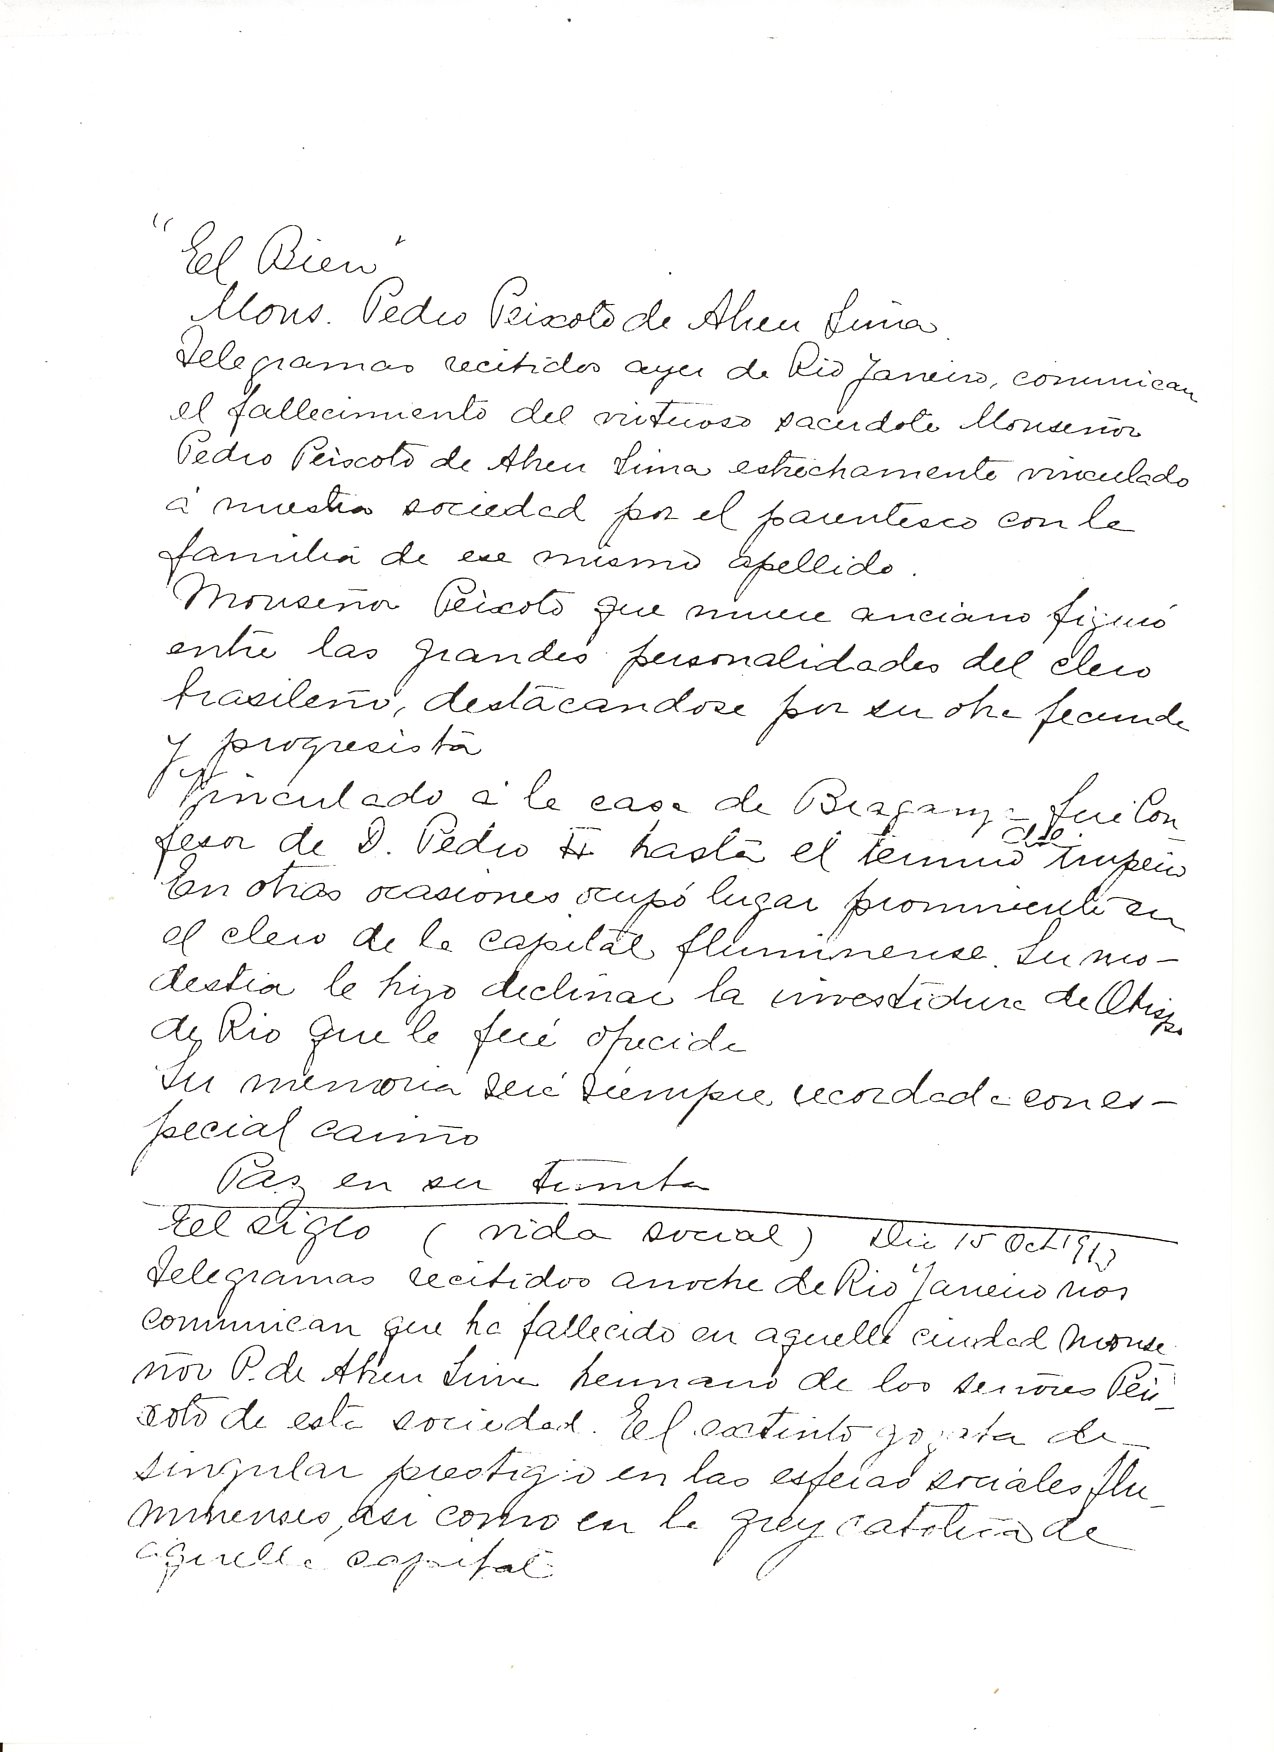 "El Bien"
Mons. Pedro Peixoto de Abreu Lima.
Telegramas recibidos ayer de Rio Janeiro, comunican
el fallecimiento del virtuoso sacerdote Monseñor
Pedro Peixoto de Abreu Lima estrechamente vinculado
á nuestra sociedad por el parentesco con la
familia de ese mismo apellido.
Monseñor Peixoto que muere anciano figuró
entre las grandes personalidades del clero
brasileño, destacandose por su obra fecunda
y progresista
Vinculado á la casa de Braganza fué Con
fesor de D. Pedro II hasta el termino del Imperio
En otras ocasiones ocupó lugar prominente en
el clero de la capital fluminense. Su mo-
destia le hizo declinar la investidura de Obispo
de Rio que le fué ofrecida
Su memoria será siempre recordada con es-
pecial cariño
Paz en su tumba
El Siglo (vida social) Dic 15 Oct 1913
Telegramas recibidos anoche de Rio Janeiro nos
comunican que ha fallecido en aquella ciudad Monse
ñor P. de Abreu Lima hermano de los señores Pei-
xoto de esta sociedad. El extinto gozaba de
singular prestigio en las esferas sociales flu-
minenses, asi como en la grey catolica de
aquella capital